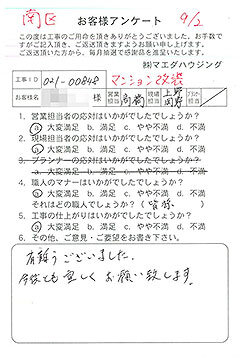 南区 お客様アンケート 9/2
この度は工事のご用命を頂きありがとうございました。お手数で
すがご記入頂き、ご返送頂きますようお願い申し上げます。
ご返送頂いた方から、毎月抽選で感謝品を進呈いたします。
㈱マエダハウジング
工事ID 021-00848 マンション改装
お客様名 様 営業担当 向 現場担当 上野 プランナー
1. 営業担当者の応対はいかがでしたでしょうか?
a 大変満足 b. 満足 c. やや不満 d. 不満
2. 現場担当者の応対はいかがでしたでしょうか?
a 大変満足 b. 満足 c. やや不満 d. 不満
3. プランナーの応対はいかがでしたでしょうか?
a. 大変満足 b. 満足 c. やや不満 d. 不満
4. 職人のマナーはいかがでしたでしょうか?
a 大変満足 b. 満足 c. やや不満 d. 不満
それはどの職人でしょうか? (皆様)
5. 工事の仕上がりはいかがでしたでしょうか?
a 大変満足 b. 満足 c. やや不満 d. 不満
6. その他、ご意見・ご要望をお書き下さい。
有難うございました。
今後とも宜しくお願い致します。